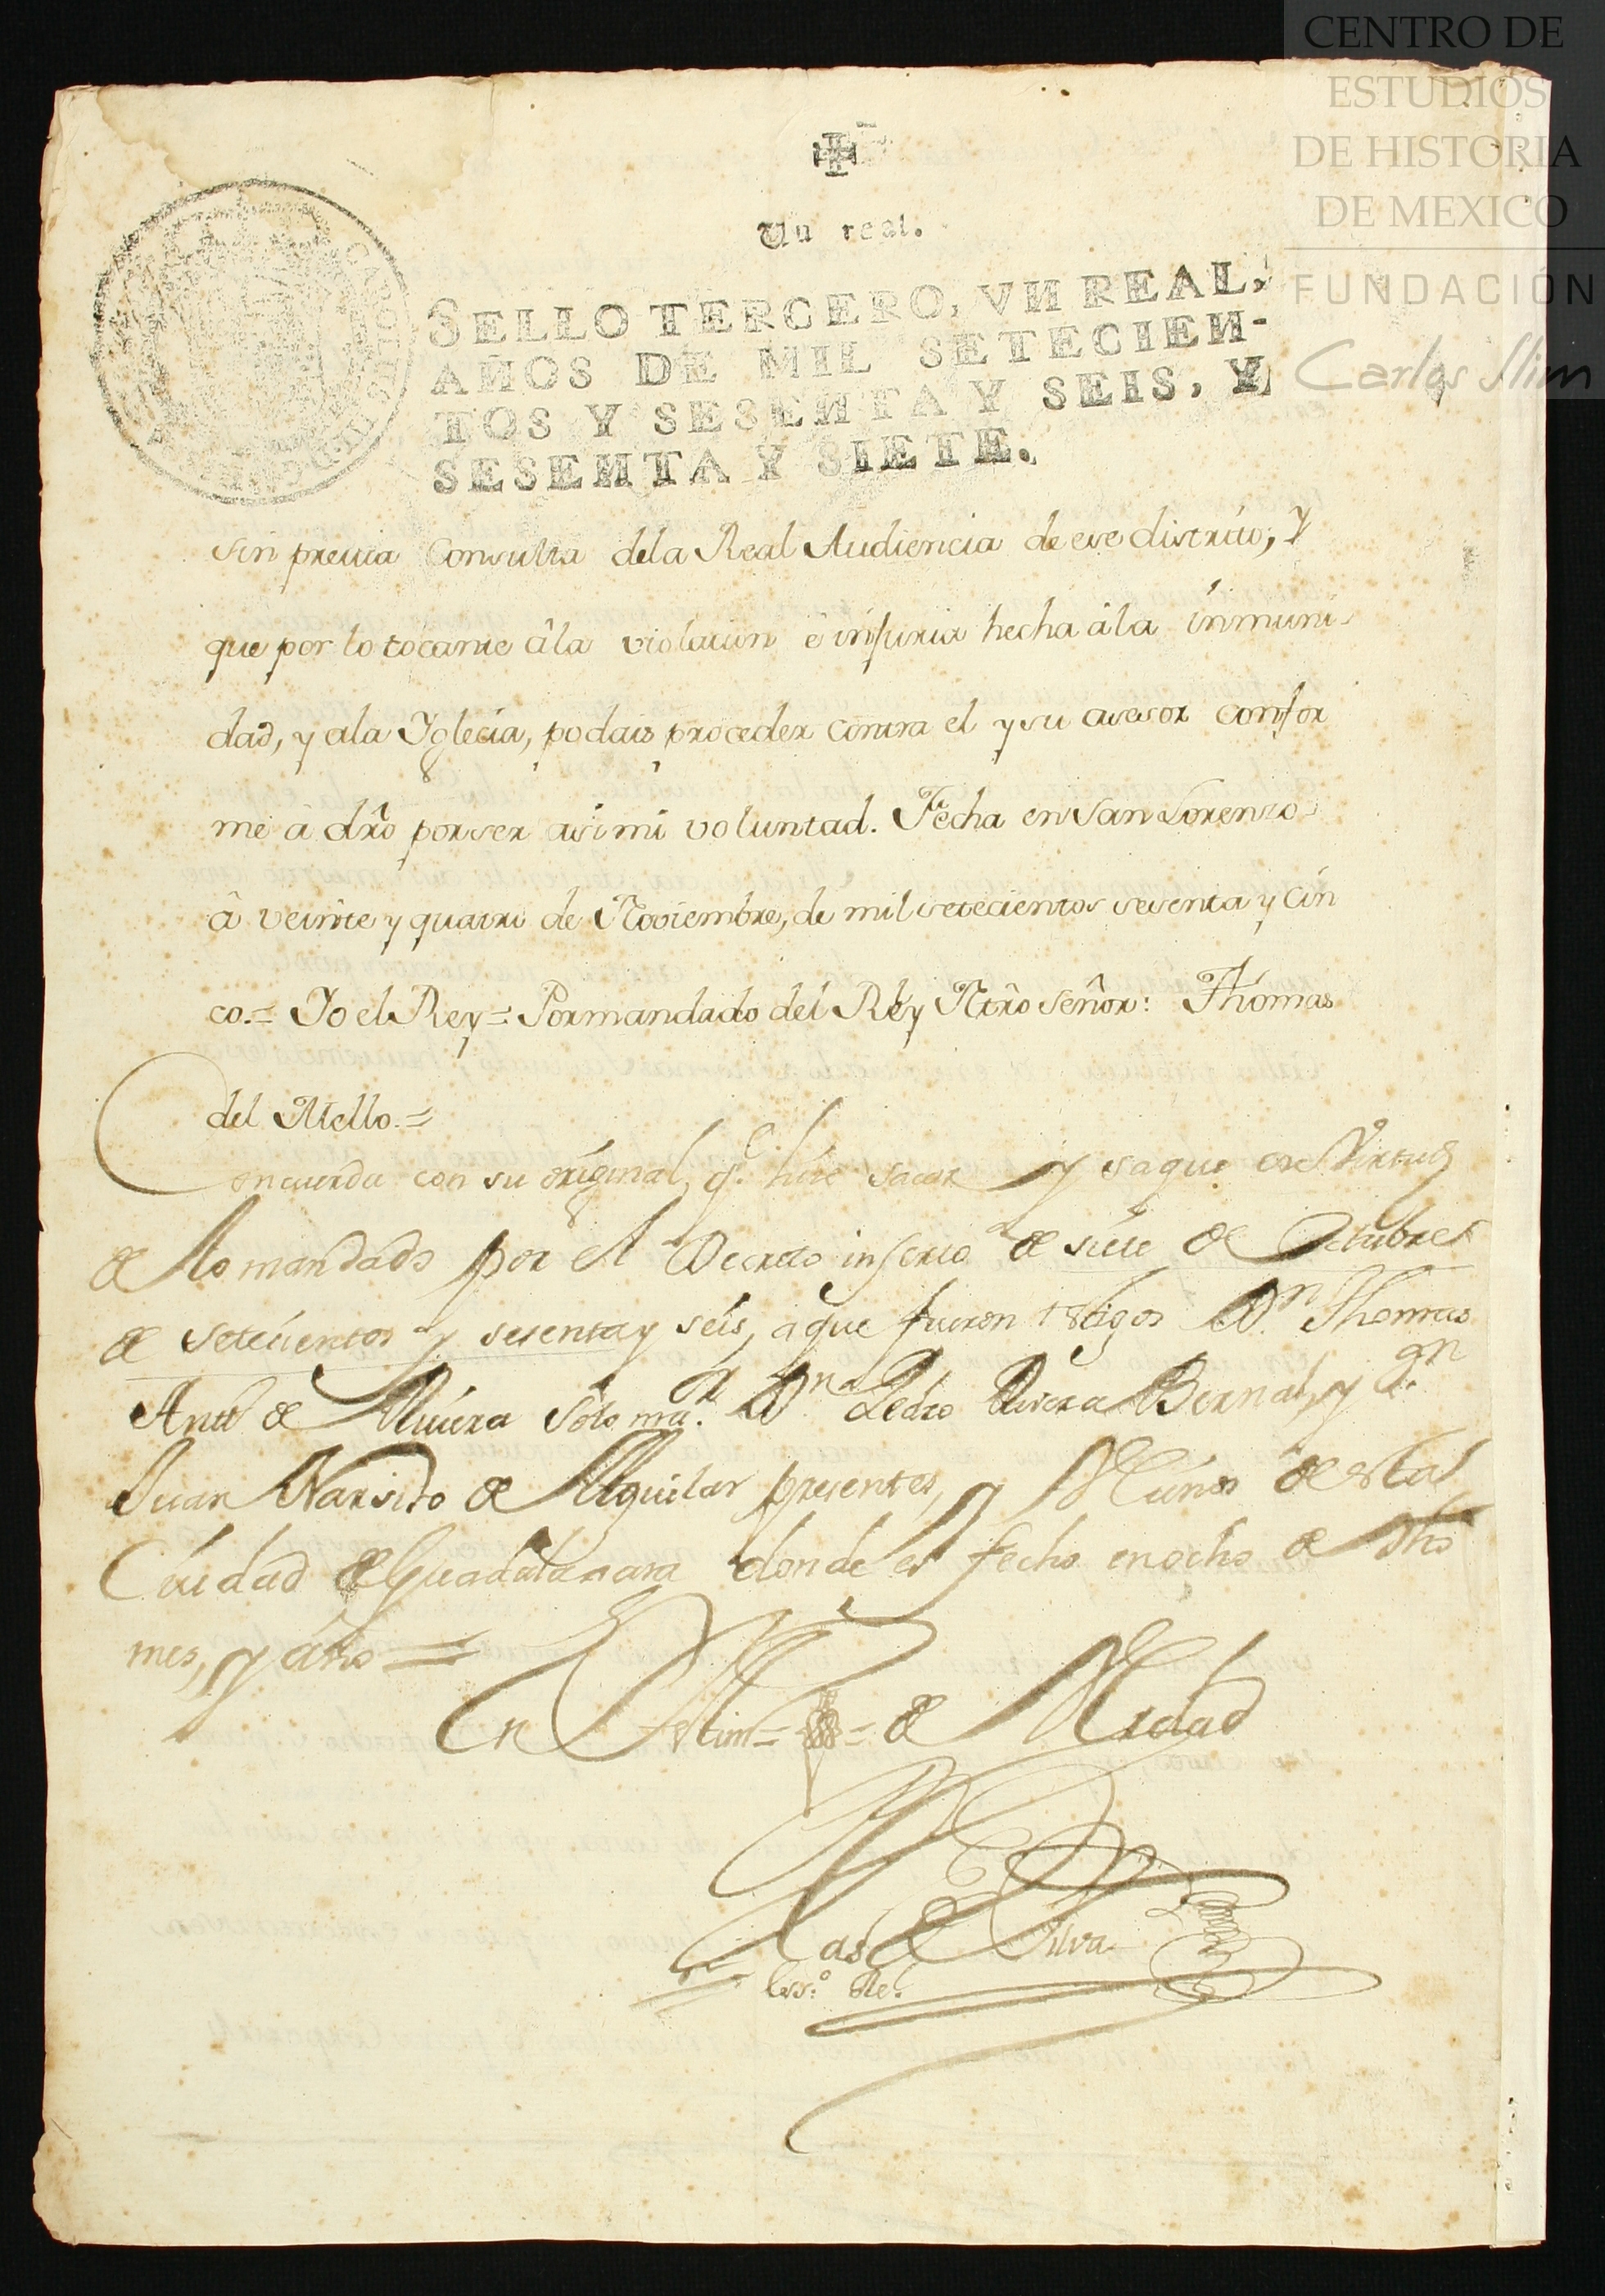 CENTRO DE
ESTUDIOS
DE HISTORIA
DE MEXICO
FUNDACIÓN
Carlos Slim
Un real.
SELLO TERCERO, VN REAL,
AÑOS DE MIL SETECIEN-
TOS Y SESENTA Y SEIS, Y
SESENTA Y SIETE.
CAROLUS III D G
sin previa Consulta dela Real Audiencia de ese distrito; Y
que por lo tocante âla violacion è injuria hecha âla inmuni-
dad, y ala Yglecia, podais proceder contra el y su asesor confor
me â dr̃o por ser asi mi voluntad. Fecha en San Lorenzo
â veinte y quatro de Noviembre, de mil setecientos sesenta y cin
co.= Yo el Rey = Por mandado del Rey Ntr̃o Señor: Thomas
del Mello.=
Concuerda con su original, q.e hise sacar y saque en Virtud
de lo mandado por el Decreto inserto de siete de Octubre
de setecientos y sesenta y seis, a que fueron testigos D.n Thomas
Antt.o de Rivera Soto ma.r D.n Pedro Rivera Bernal, y D.n
Juan Narsiso de Aguilar presentes, y Vecinos de esta
Ciudad de Guadalaxara donde es fecho en ocho de dho
mes, y año =
En Testim.= = de Verdad
Blas de Silva
Ess.no Rl.